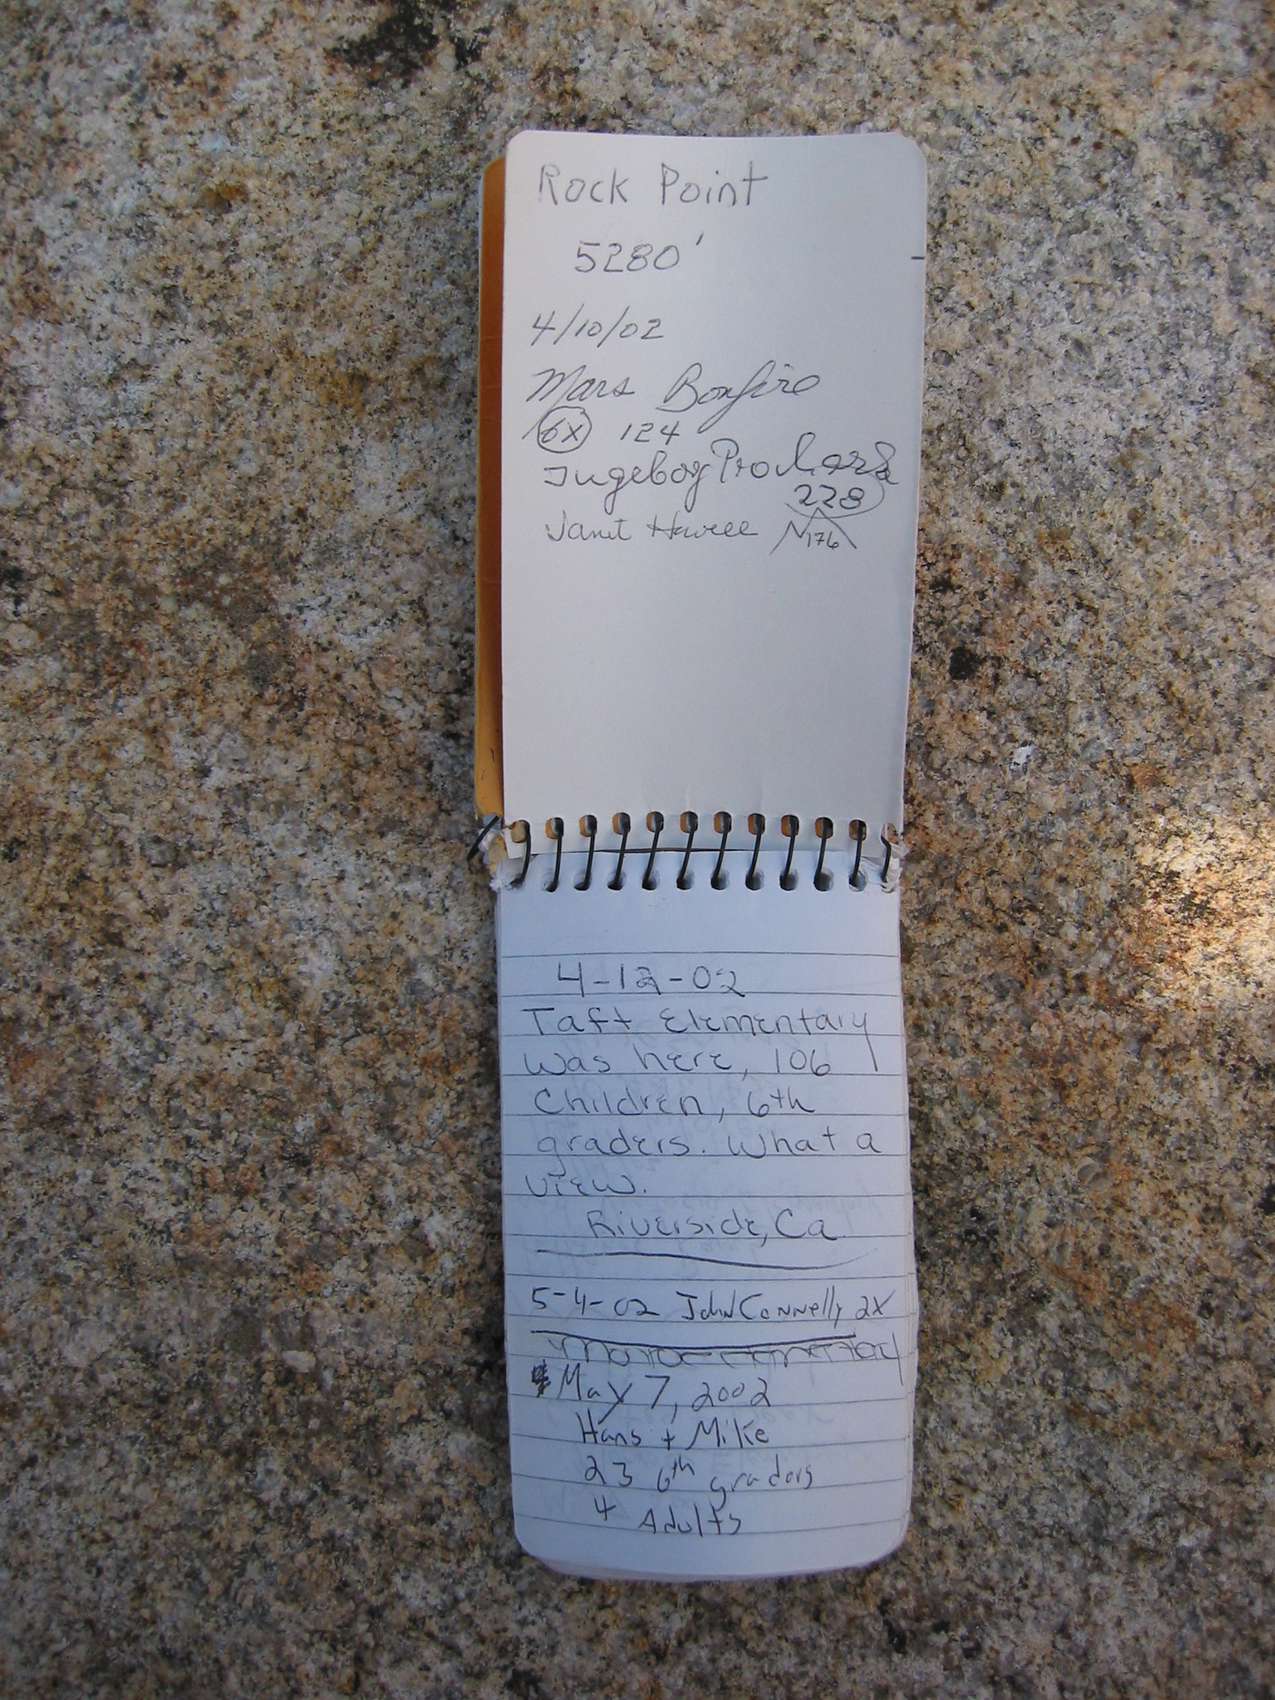 Rock Point
5280'
4/10/02
Mars Bonfire
6X 124
Ingeborg Prochazka
228
Janet Howell 176
4-12-02
Taft Elementary
was here, 106
Children, 6th
graders. What a
view.
Riverside, Ca.
5-4-02 John Connelly 2X
May 7, 2002
Hans + Mike
23 6th graders
4 Adults